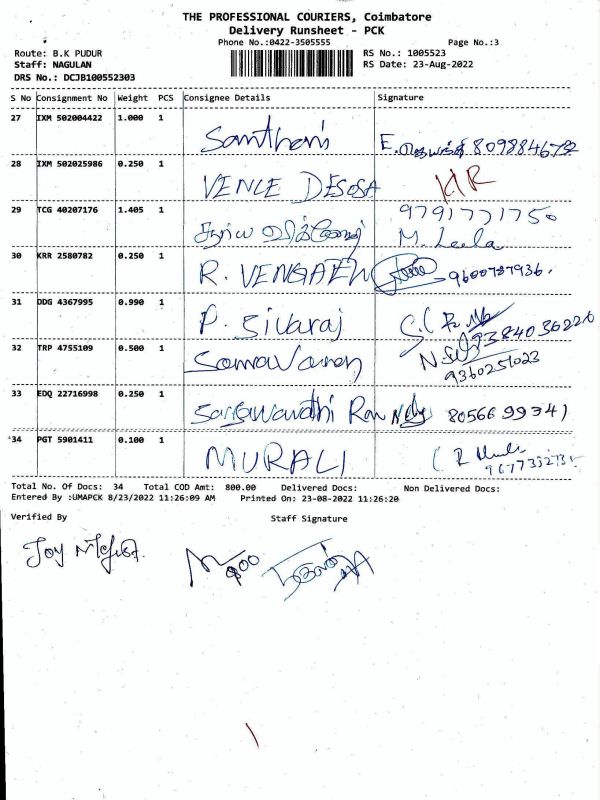 THE PROFESSIONAL COURIERS, Coimbatore
Delivery Runsheet - PCK
Phone No.:0422-3505555 Page No.:3
Route: B.K PUDUR RS No.: 1005523
Staff: NAGULAN RS Date: 23-Aug-2022
DRS No.: DCJB100552303
S No Consignment No Weight PCS Consignee Details Signature
27 IXM 502004422 1.000 1
28 IXM 502025986 0.250 1 VENCE DESOSA
29 TCG 40207176 1.405 1 9791771750
M. Leela
30 KRR 2580782 0.250 1 R. 9600787936.
31 DDG 4367995 0.990 1 P. Sivaraj
32 TRP 4755109 0.500 1 9360251023
33 EDQ 22716998 0.250 1 8056699341
34 PGT 5901411 0.100 1 MURALI
Total No. Of Docs: 34 Total COD Amt: 800.00 Delivered Docs: Non Delivered Docs:
Entered By :UMAPCK 8/23/2022 11:26:09 AM Printed On: 23-08-2022 11:26:20
Verified By Staff Signature
Joy